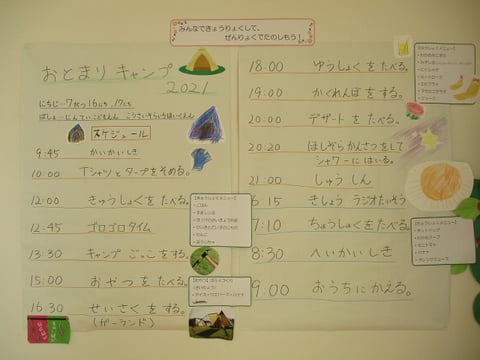 みんなできょうりょくして、
ぜんりょくでたのしもう！
おとまりキャンプ
2021
にちじ…7がつ16にち,17にち
スケジュール
9:45 かいかいしき
10:00 Tシャツとタープをそめる。
12:00 きゅうしょくをたべる。
12:45 ゴロゴロタイム
13:30 キャンプごっこをする。
15:00 おやつをたべる。
16:30 せいさくをする。
(ガーランド)
18:00 ゆうしょくをたべる。
19:00 かくれんぼをする。
20:00 デザートをたべる。
20:20 ほしぞらかんさつをして
シャワーにはいる。
21:00 しゅうしん
6:15 きしょう ラジオたいそう
7:10 ちょうしょくをたべる。
8:30 へいかいしき
9:00 おうちにかえる。
【きゅうしょくメニュー】
・ごはん
【ゆうしょくメニュー】
【ちょうしょくメニュー】
・ホットドッグ
・ミニトマト
・バナナ